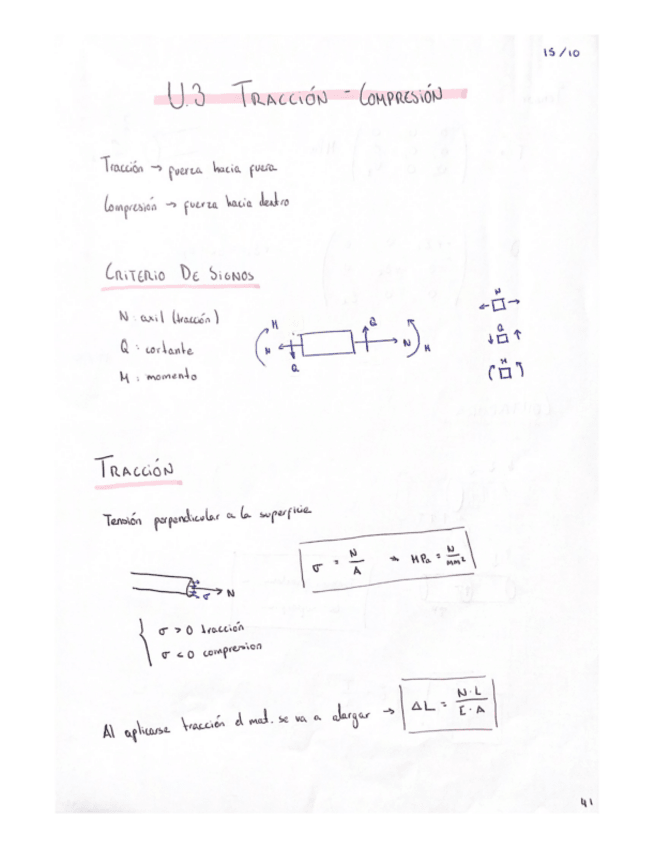 15/10
U.3 TRACCIÓN - COMPRESIÓN
Tracción → fuerza hacia fuera
Compresión → fuerza hacia dentro
CRITERIO DE SIGNOS
N: axil (tracción)
Q: cortante
M: momento
M N Q Q N M
N
Q
M
TRACCIÓN
Tensión perpendicular a la superficie
σ = N/A → MPa = N/mm²
σ N
σ > 0 tracción
σ < 0 compresion
Al aplicarse tracción el mat. se va a alargar → ΔL = N·L/E·A
41